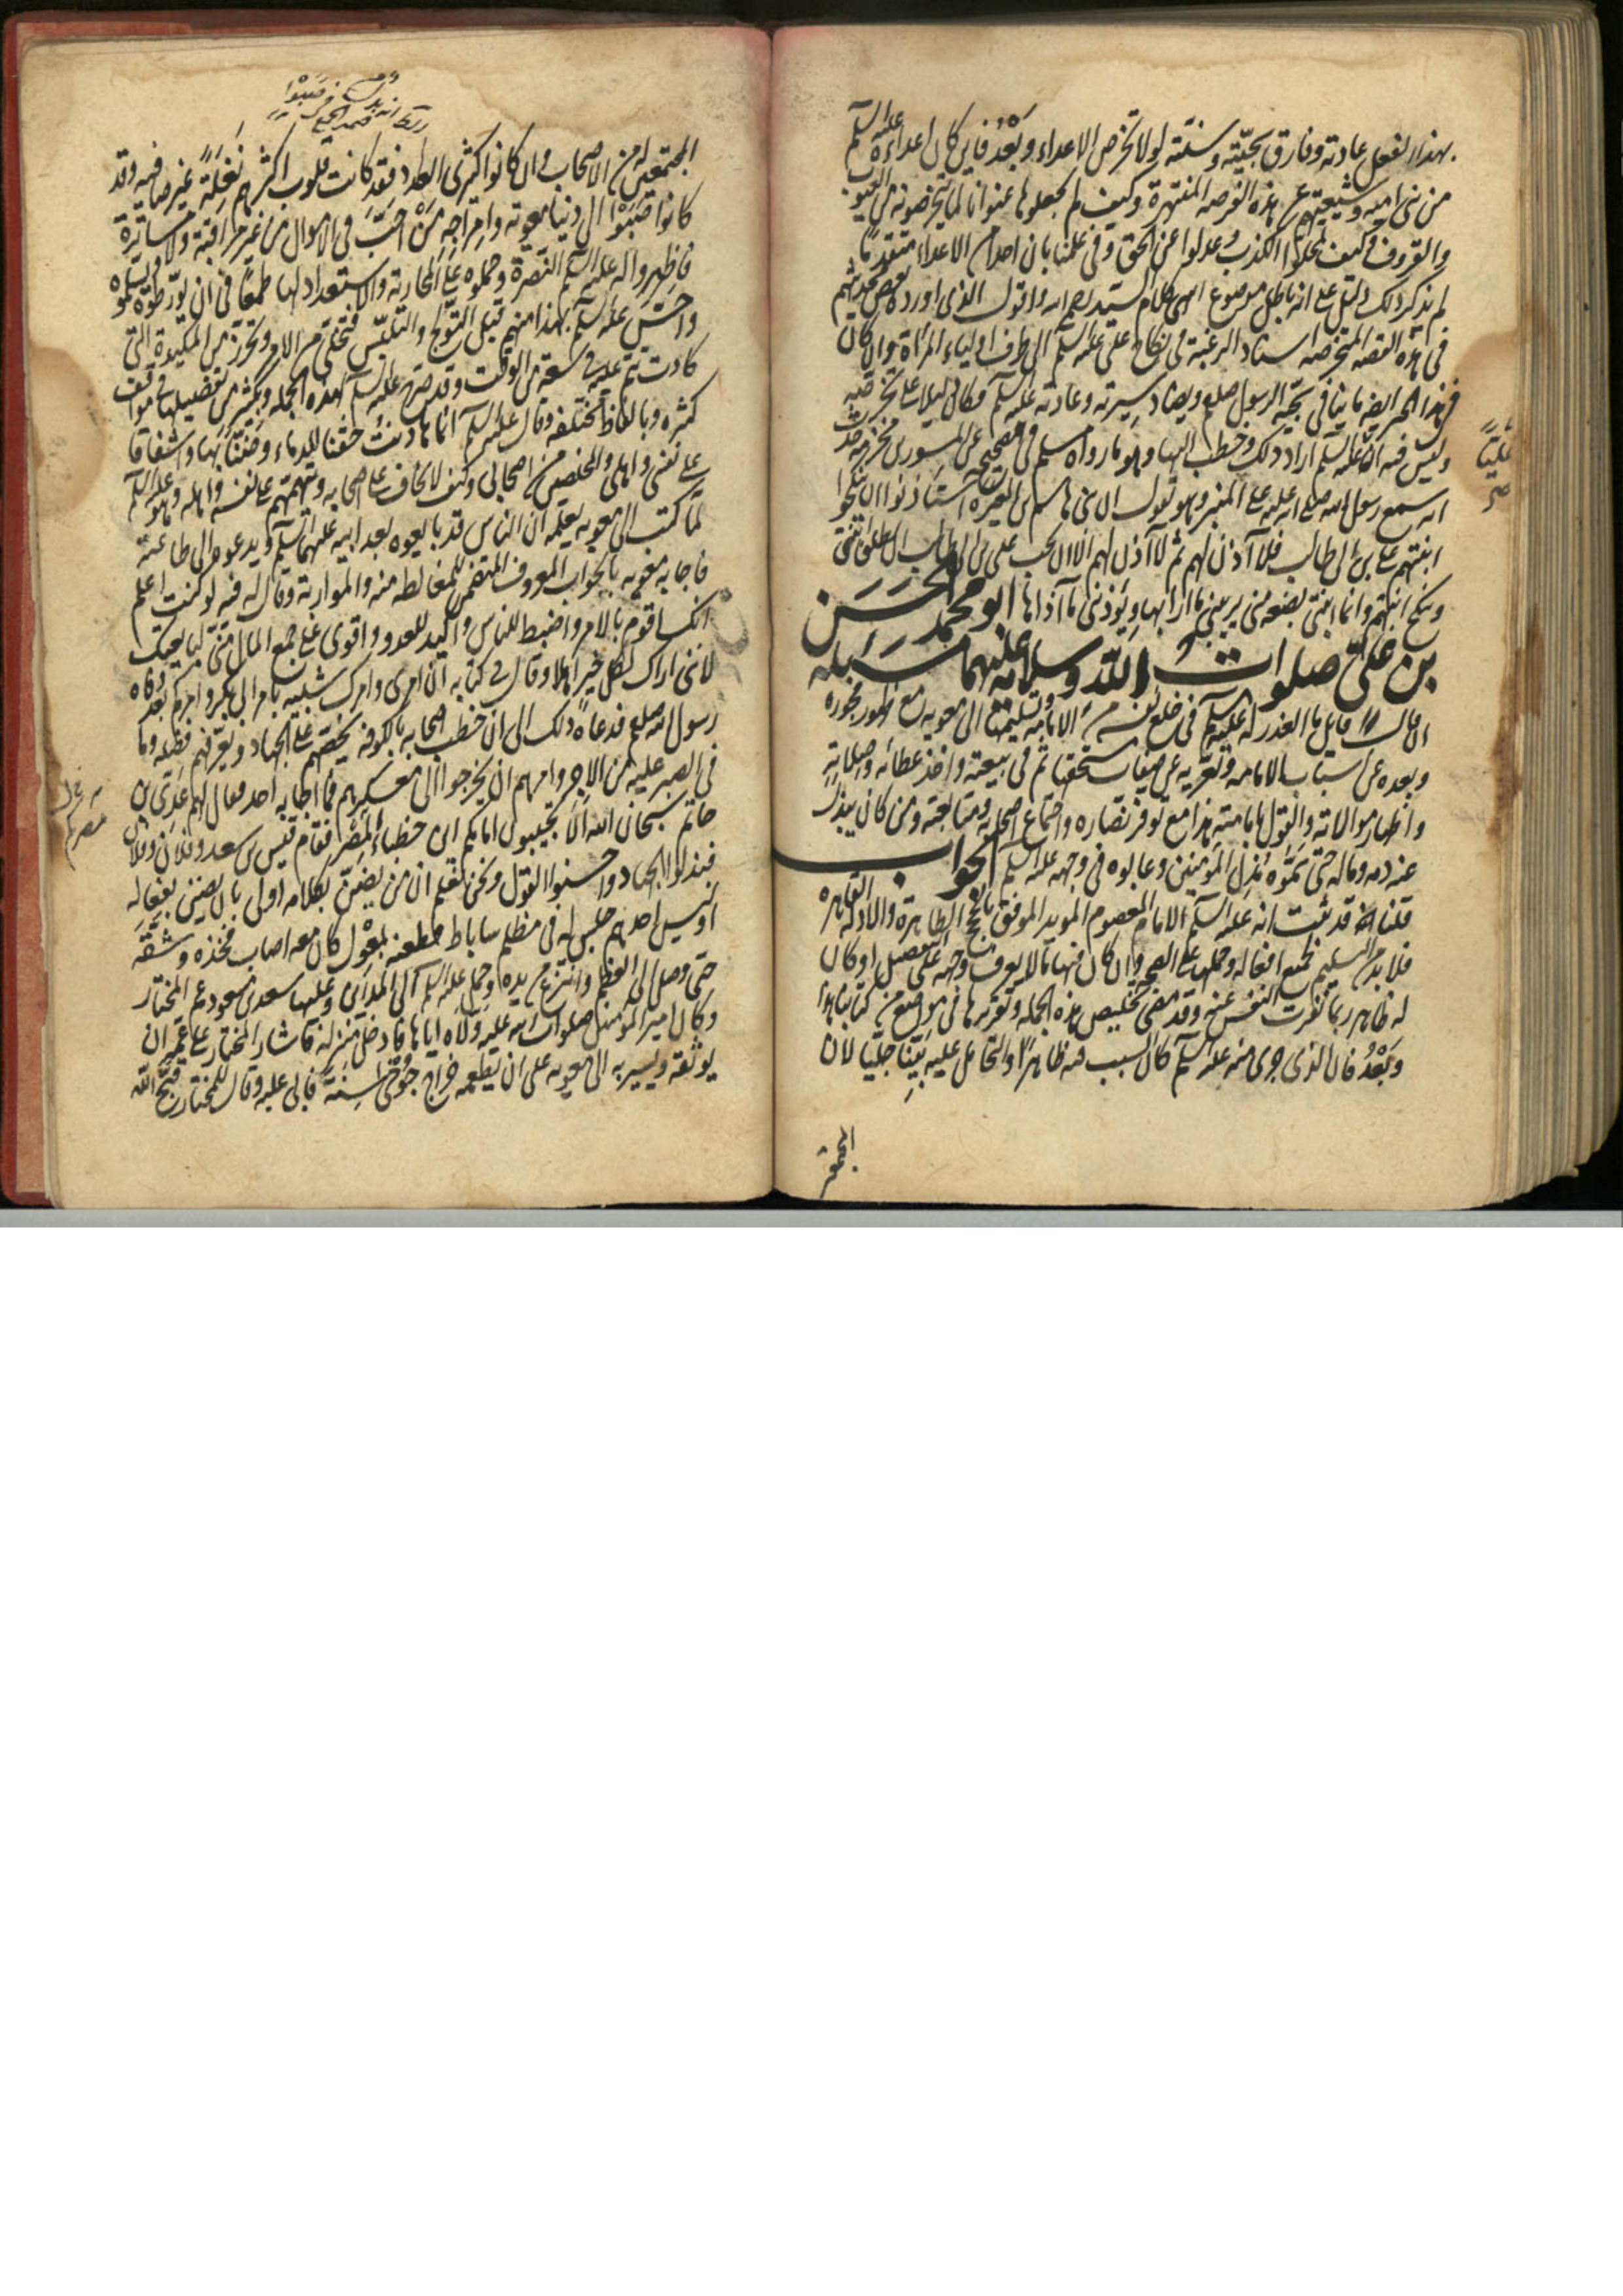 بهذا الفعل عادته وفارق سجيته وسنته لولا تخرص الاعداء وبعد فاين كان اعداءه عليه السلم
من بنى اميه وشيعتهم عن هذه الفرصه المنتهزة وكيف لم يجعلوها عنوانا لما يتخرصونه من العيوب
والقروف وكيف تمحلوا الكذب وعدلوا عن الحق وفى علمنا بان احدا من الاعداء متقدما
لم يذكر ذلك دليل على انه باطل موضوع انتهى كلام السيد رحمه الله واقول الذى اورده بعض محدثيهم
فى هذه القصه المتخرصه اسناد الرغبة فى نكاح على عليه السلم الى طرف اولياء المراة وان كان
فهذا الخبر ايضا ينافى سجية الرسول صلعم ويضاد سيرته وعادته عليه السلم فكان دليلا على تخرصه
وليس فيه انه عليه السلم اراد ذلك وخطب اليها وهو ما رواه مسلم فى صحيحه عن المسور بن مخرمه حدث
انه سمع رسول الله صلى الله عليه على المنبر وهو يقول ان بنى هاشم بن المغيره استاذنوا ان ينكحوا
ابنتهم على بن ابى طالب فلا آذن لهم ثم لا آذن لهم الا ان يحب على بن ابى طالب ان يطلق ابنتى
وينكح ابنتهم وانما ابنتى بضعه منى يريبنى ما ارابها ويؤذينى ما آذاها ابو محمد الحسن
بن على صلوات الله وسلامه عليهما مسئله
ان قال قايل ما العذر له عليه السلم فى خلع نفسه من الامامه وتسليمها الى معويه مع ظهور فجوره
وبعده عن اسباب الامامه وتعريه عن صفات مستحقها ثم فى بيعته واخذ عطائه وصلاته
واظهار موالاته والقول بامامته هذا مع توفر نصاره واجتماع اصحابه ومتابعته ومن كان يبذل
عنه دمه وماله حتى سموه مذل المؤمنين وعابوه فى وجهه عليه السلم الجواب
قلنا قد ثبت انه عليه السلم الامام المعصوم المويد الموفق بالحجج الظاهرة والادلة القاهره
فلا بد من التسليم لجميع افعاله وحملها على الصحه وان كان فيها ما لا يعرف وجهه على التفصيل او كان
له ظاهر ربما نفرت النفس عنه وقد مضى تلخيص هذه الجمله وتقريرها فى مواضع من كتابنا هذا
وبعد فان الذى جرى منه عليه السلم كان السبب فيه ظاهرا والحامل عليه بينا جليا لان
المجتمعين
المجتمعين له من الاصحاب وان كانوا كثيرى العدد فقد كانت قلوب اكثرهم نغلة غير صافيه وقد
كانوا صبوا الى دنيا معويه وامراجه من احب فى الاموال من غير مراقبة ولا مساترة
فاظهروا له عليه السلم النصرة وحملوه على المحاربة والاستعداد لها طمعا فى ان يورطوه ويسلموه
واحس عليه السلم بهذا منهم قبل التولج والتلبس فتخلى من الامر وتحرز من المكيدة التى
كادت تتم عليه فى سعة من الوقت وقد صرح عليه السلم بهذه الجمله وبكثير من تفصيلها فى مواقف
كثيره وبالفاظ مختلفه وقال عليه السلم انما هادنت حقنا للدماء وضنا بها واشفاقا
على نفسى واهلى والمخلصين من اصحابى وكيف لا يخاف على اصحابه ويتهمهم على نفسه واهله وهو عليه السلم
لما كتب الى معويه يعلمه ان الناس قد بايعوه بعد ابيه عليهما السلم ويدعوه الى طاعته
فاجابه معويه بالجواب المعروف المتضمن للمغالطه منه والمواربة وقال له فيه لو كنت اعلم
انك اقوم بالامر واضبط للناس واكيد للعدو واقوى على جمع المال منى لبايعتك
لاننى اراك لكل خير اهلا وقال فى كتابه ان امرى وامرك شبيه بامر ابى بكر وامركم بعد وفاه
رسول الله صلعم فدعاه ذلك الى ان خطب اصحابه بالكوفه يحضهم على الجهاد ويعرفهم فضله وما
فى الصبر عليه من الاجر وامرهم ان يخرجوا الى معسكرهم فما اجابه احد فقال لهم عدى بن
حاتم سبحان الله الا تجيبون امامكم اين خطباء المصر فقام قيس بن سعد وفلان وفلان
فبذلوا الجهاد واحسنوا القول ونحن نعلم ان من يضن بكلامه اولى بان يضن بفعاله
اوليس احدهم جلس له فى مظلم ساباط فطعنه بمغول كان معه اصاب فخذه وشقه
حتى وصل الى العظم وانتزع من يده وحمل عليه السلم الى المداين وعليها سعد بن مسعود عم المختار
وكان امير المؤمنين صلوات الله عليه ولاه اياها فادخل منزله فاشار المختار على عمه ان
يوثقه ويسير به الى معويه على ان يطعمه خراج جوخى سنة فابى عليه وقال للمختار قبح الله